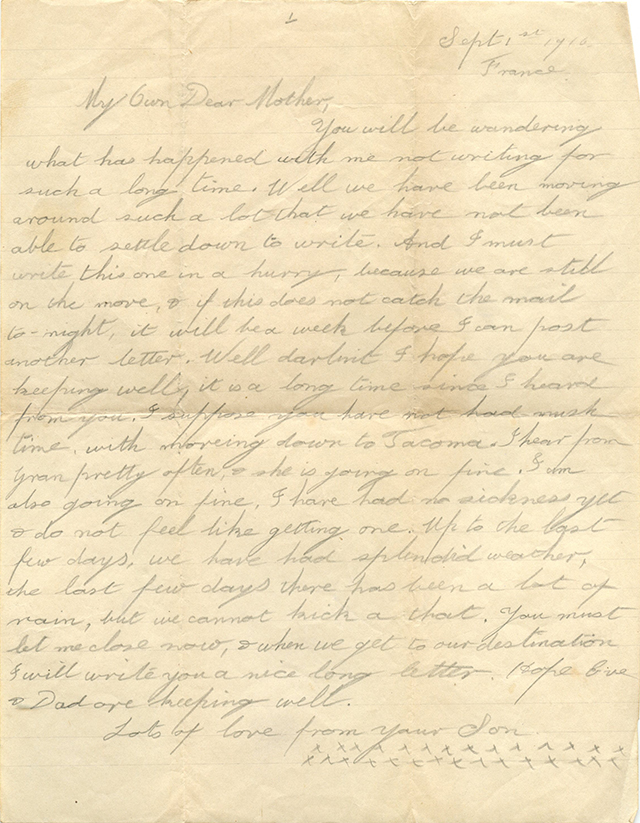 Sept 1st 1916
France.
My Own Dear Mother,
You will be wandering
what has happened with me not writing for
such a long time. Well we have been moving
around such a lot that we have not been
able to settle down to write. And I must
write this one in a hurry, because we are still
on the move, & if this does not catch the mail
to-night, it will be a week before I can post
another letter. Well darlint I hope you are
keeping well, it is a long time since I heard
from you. I suppose you have not had much
time, with moveing down to Tacoma. I hear from
Gran pretty often, & she is going on fine. I am
also going on fine, I have had no sickness yet
& do not feel like getting one. Up to the last
few days, we have had splendid weather,
the last few days there has been a lot of
rain, but we cannot kick a that. You must
let me close now, & when we get to our destination
I will write you a nice long letter. Hope Eve
& Dad are keeping well.
Lots of love from your Son
x x x x x x x x x x x x x x
x x x x x x x x x x x x x x